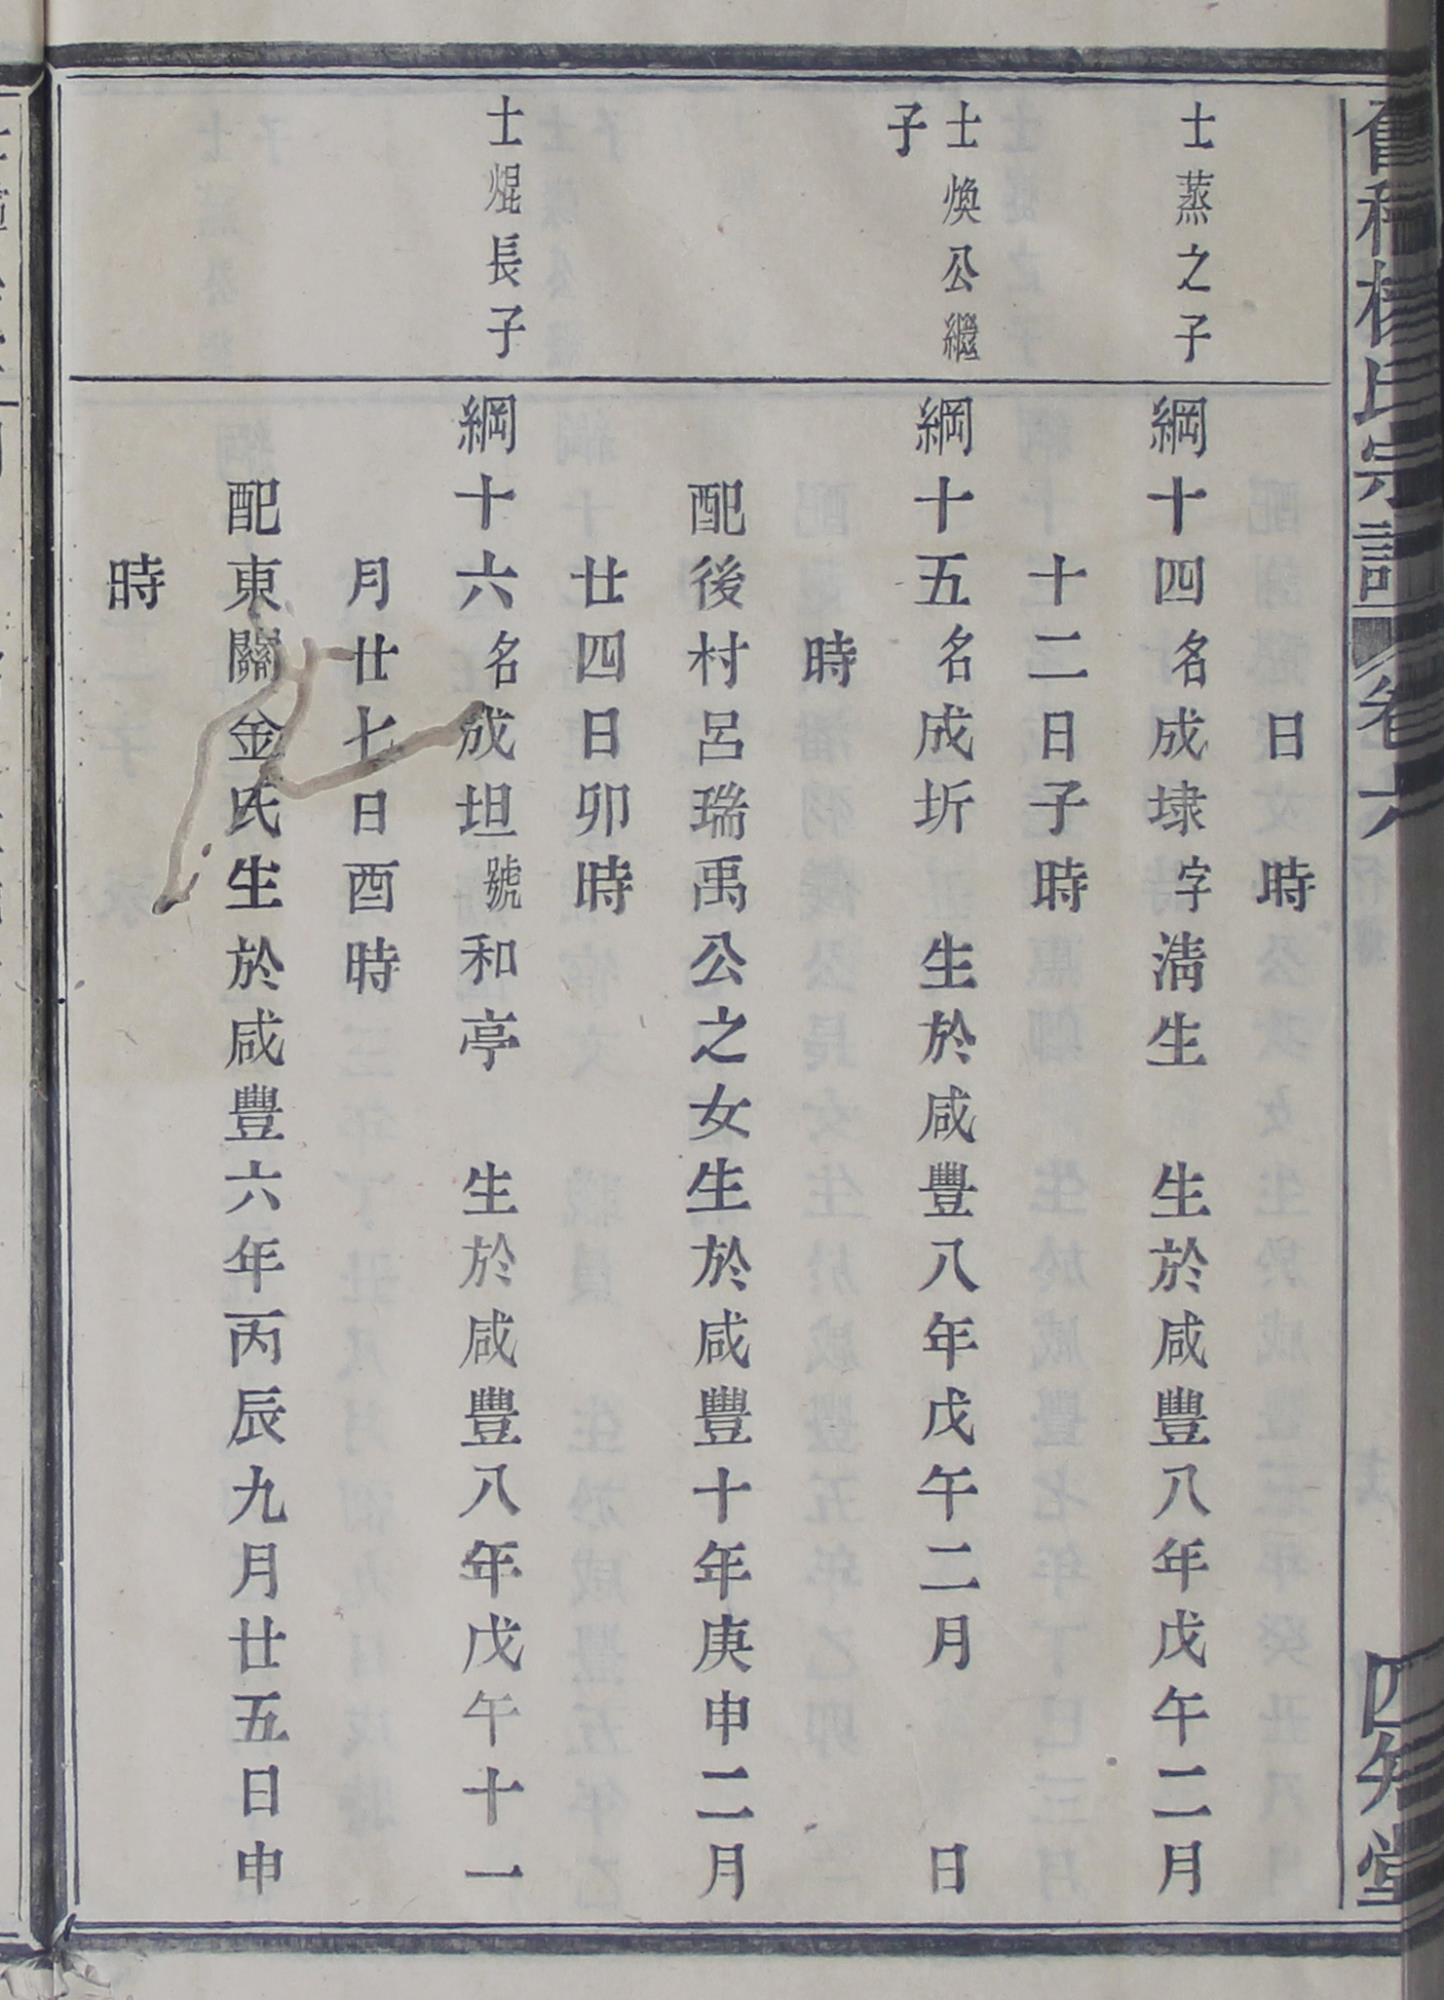 日 時
士蒸之子
綱十四名成埭字淸生 生於咸豐八年戊午二月
十二日子時
士煥公繼
子
綱十五名成圻 生於咸豐八年戊午二月 日
時
配後村呂瑞禹公之女生於咸豐十年庚申二月
廿四日卯時
士焜長子
綱十六名成坦號和亭 生於咸豐八年戊午十一
月廿七日酉時
配東關金氏生於咸豐六年丙辰九月廿五日申
時
氏宗譜 卷六 四知堂